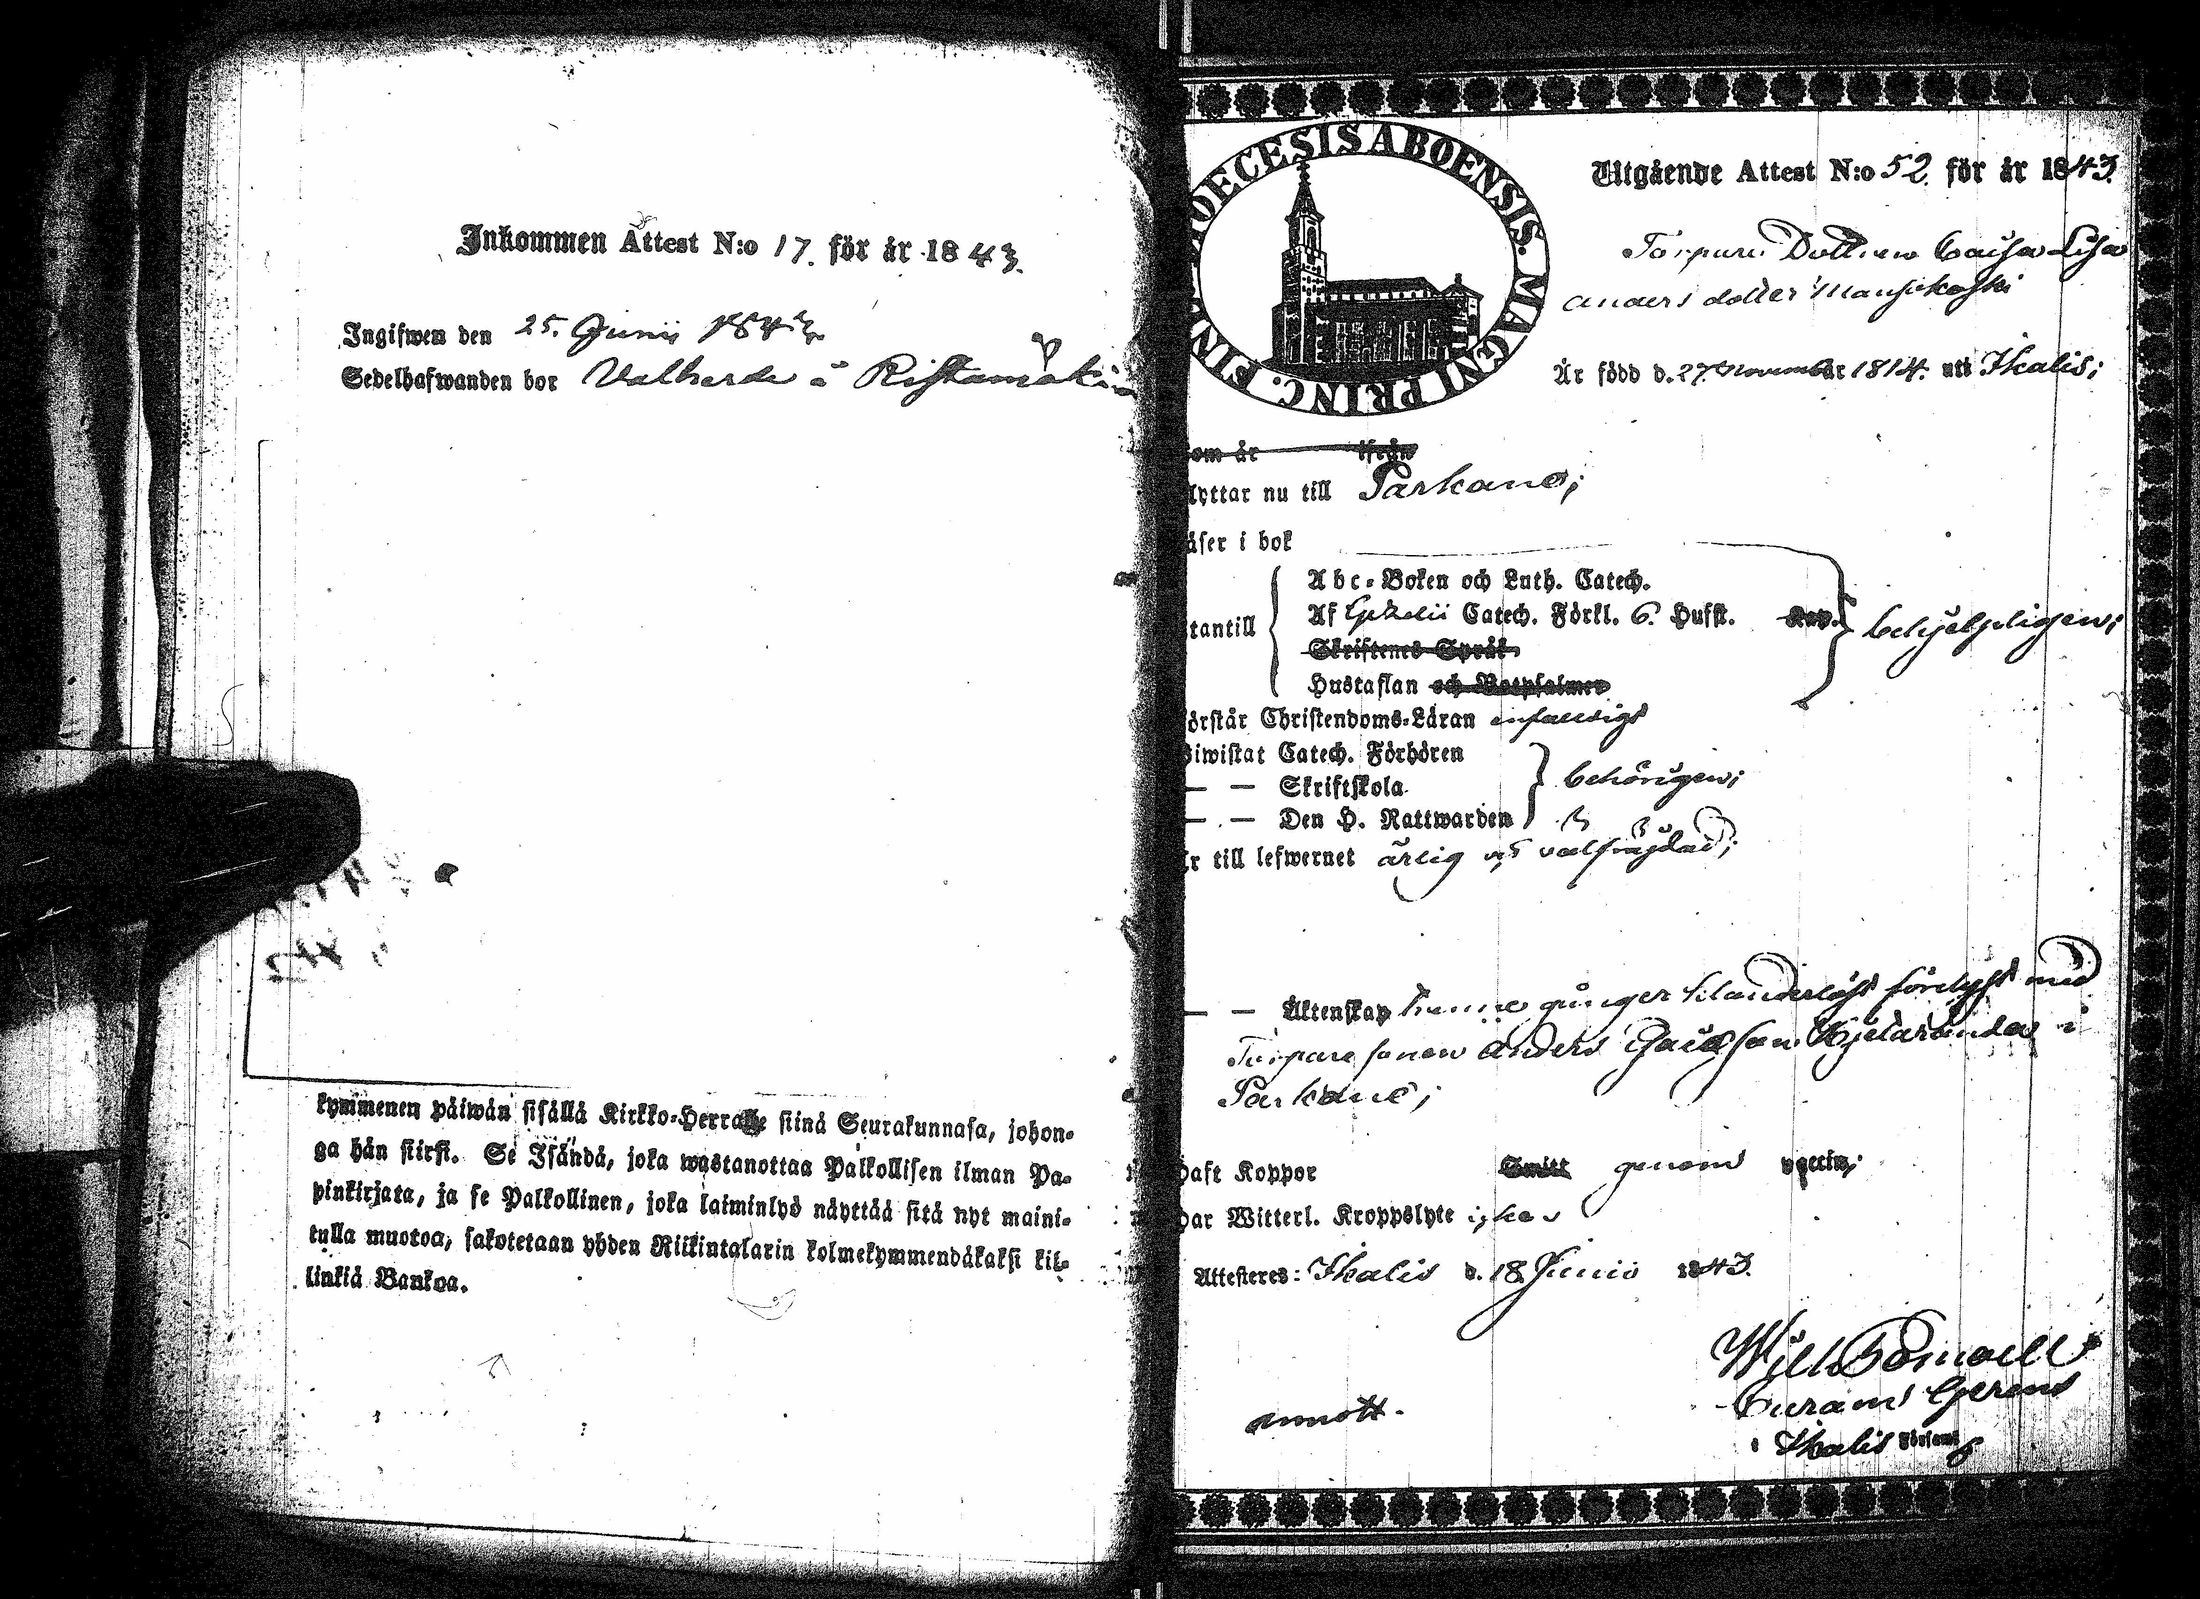 Inkommen Attest N:o 17. för år 1843.
Ingifwen den 25. Junii 1843
Sedelhafwanden bor Valherde å Ristamäki
kymmenen päiwän sisällä Kirkko-Herralle siinä Seurakunnasa, johon-
ga hän siirsi. Se Isändä, joka wastanottaa Palkollisen ilman Pa-
pinkirjata, ja se Palkollinen, joka laiminlyö näyttää sitä nyt maini-
tulla muotoa, sakotetaan yhden Riikintalarin kolmekymmendäkaksi kil-
lingiä Bankoa.
DIOECESIS ABOENSIS. MAGNI PRINC. FINL.
Utgående Attest N:o 52. för år 1843.
Torpare Dottren Cajsa Lisa
Anders dotter Mansikoski
Är född d. 27. November 1814. uti Ikalis;
som år ifrån
lyttar nu till Parkano;
äser i bok
Abc-Boken och Luth. Catech.
tantill Af Gezelii Catech. Förkl. 6. Hufst. Kap. behjelpligen;
Skriftenes Språk
Hustaflan och Botpsalmer
örstår Christendoms-Läran enfaldigt
Biwistat Catech. Förhören
— — Skriftskola behörigen;
— — Den H. Nattwarden
Är till lefwernet ärlig och välfrägdad;
— — Äktenskap trenne gånger klanderlöst förelyst med
Torpare sonen Anders Isacsson in Parkano;
Haft Koppor Smitt genom vaccin;
Har Witterl. Kroppslyte icke
Attesteres: Ikalis d. 18 Junii 1843.
Annott.
Curam Gerens
i Ikalis Församl